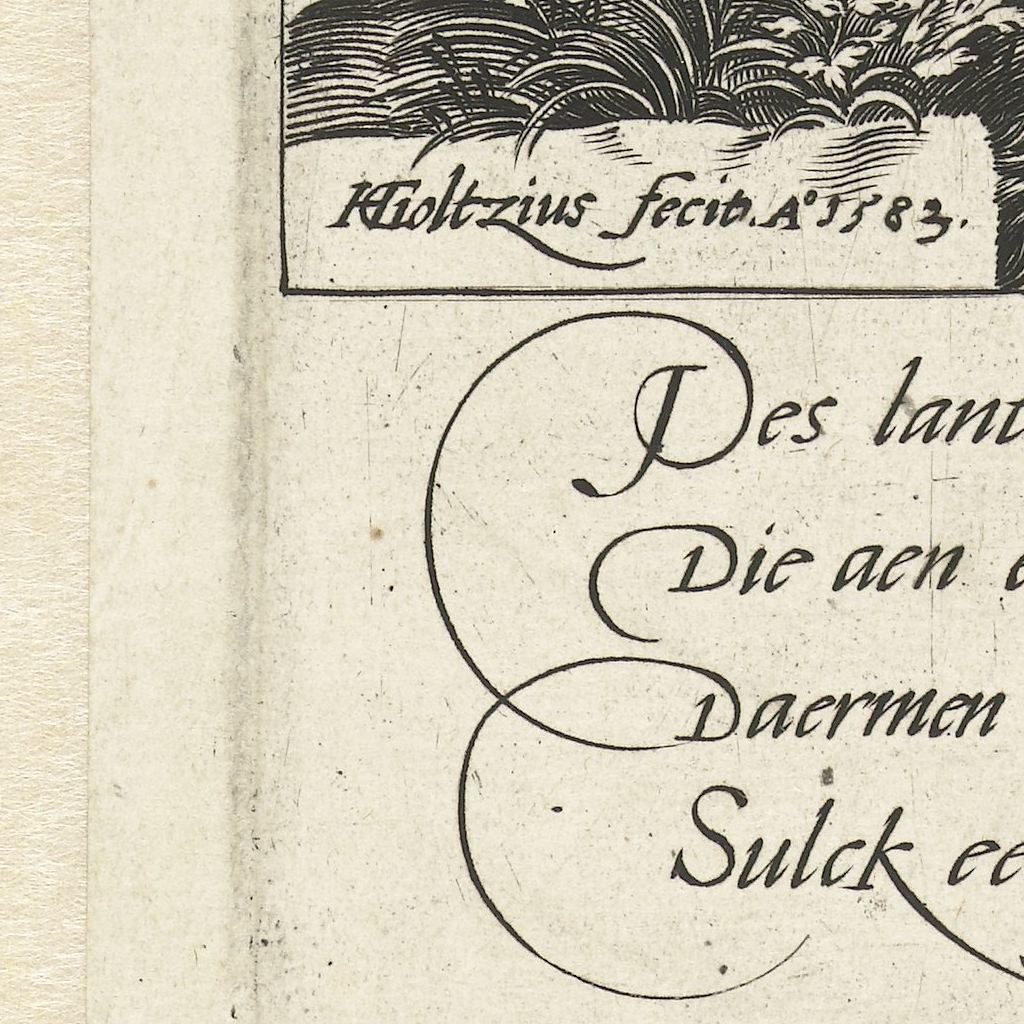 HGoltzius fecit. A° 1583.
Des lant
Die aen e
Daermen
Sulck ee